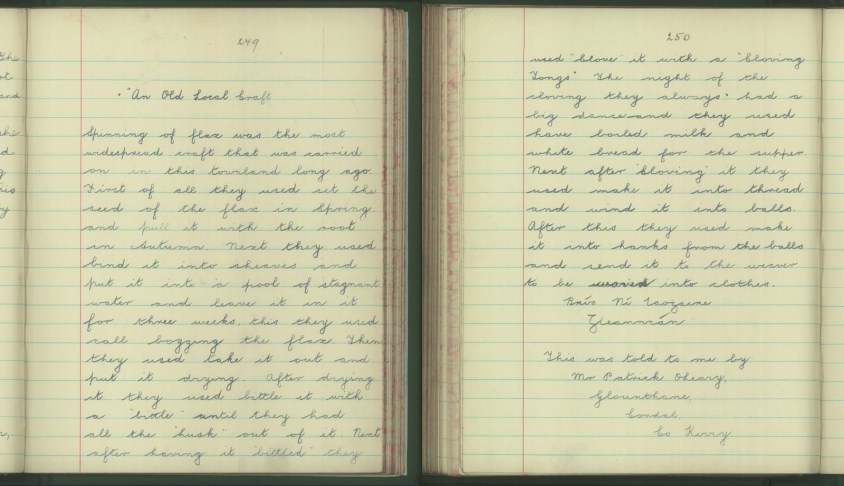 249
"An Old Local Craft
Spinning of flax was the most
widespread craft that was carried
on in this townland long ago
First of all they used set the
seed of the flax in Spring
and pull it with the root
in Autumn. Next they used
bind it into sheaves and
put it into a pool of stagnant
water and leave it in it
for three weeks, this they used
call bogging the flax Then
they used take it out and
put it drying. After drying
it they used bittle it with
a "bittle" until they had
all the "husk" out of it. Next
after having it "bittled" they
250
used "clove" it with a "Cloving
Tongs" The night of the
cloving they always had a
big dance and they used
have boiled milk and
white bread for the supper
Next after "cloving" it they
used make it into thread
and wind it into balls.
After this they used make
it into hanks from the balls
and send it to the weaver
to be into clothes.
Ní
This was told to me by
Mr Patrick O'Leary,
Glounthane,
Cordal,
Co Kerry